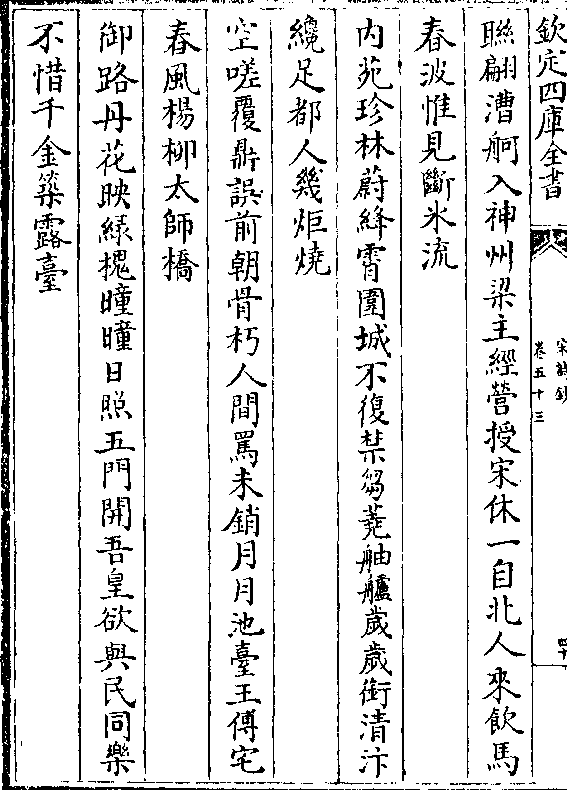 欽定四庫全書
宋詩鈔
卷五十三
四十
聯翩漕舸入神州梁主經營授宋休一自北人來飲馬
春波惟見斷氷流
内苑珍林蔚絳霄圍城不復禁芻蕘舳艫歲歲銜清汴
纔足都人幾炬燒
空嗟覆鼎誤前朝骨朽人間罵未銷月月池臺王傅宅
春風楊柳太師橋
御路丹花映緑槐曈曈日照五門開吾皇欲與民同樂
不惜千金築露臺